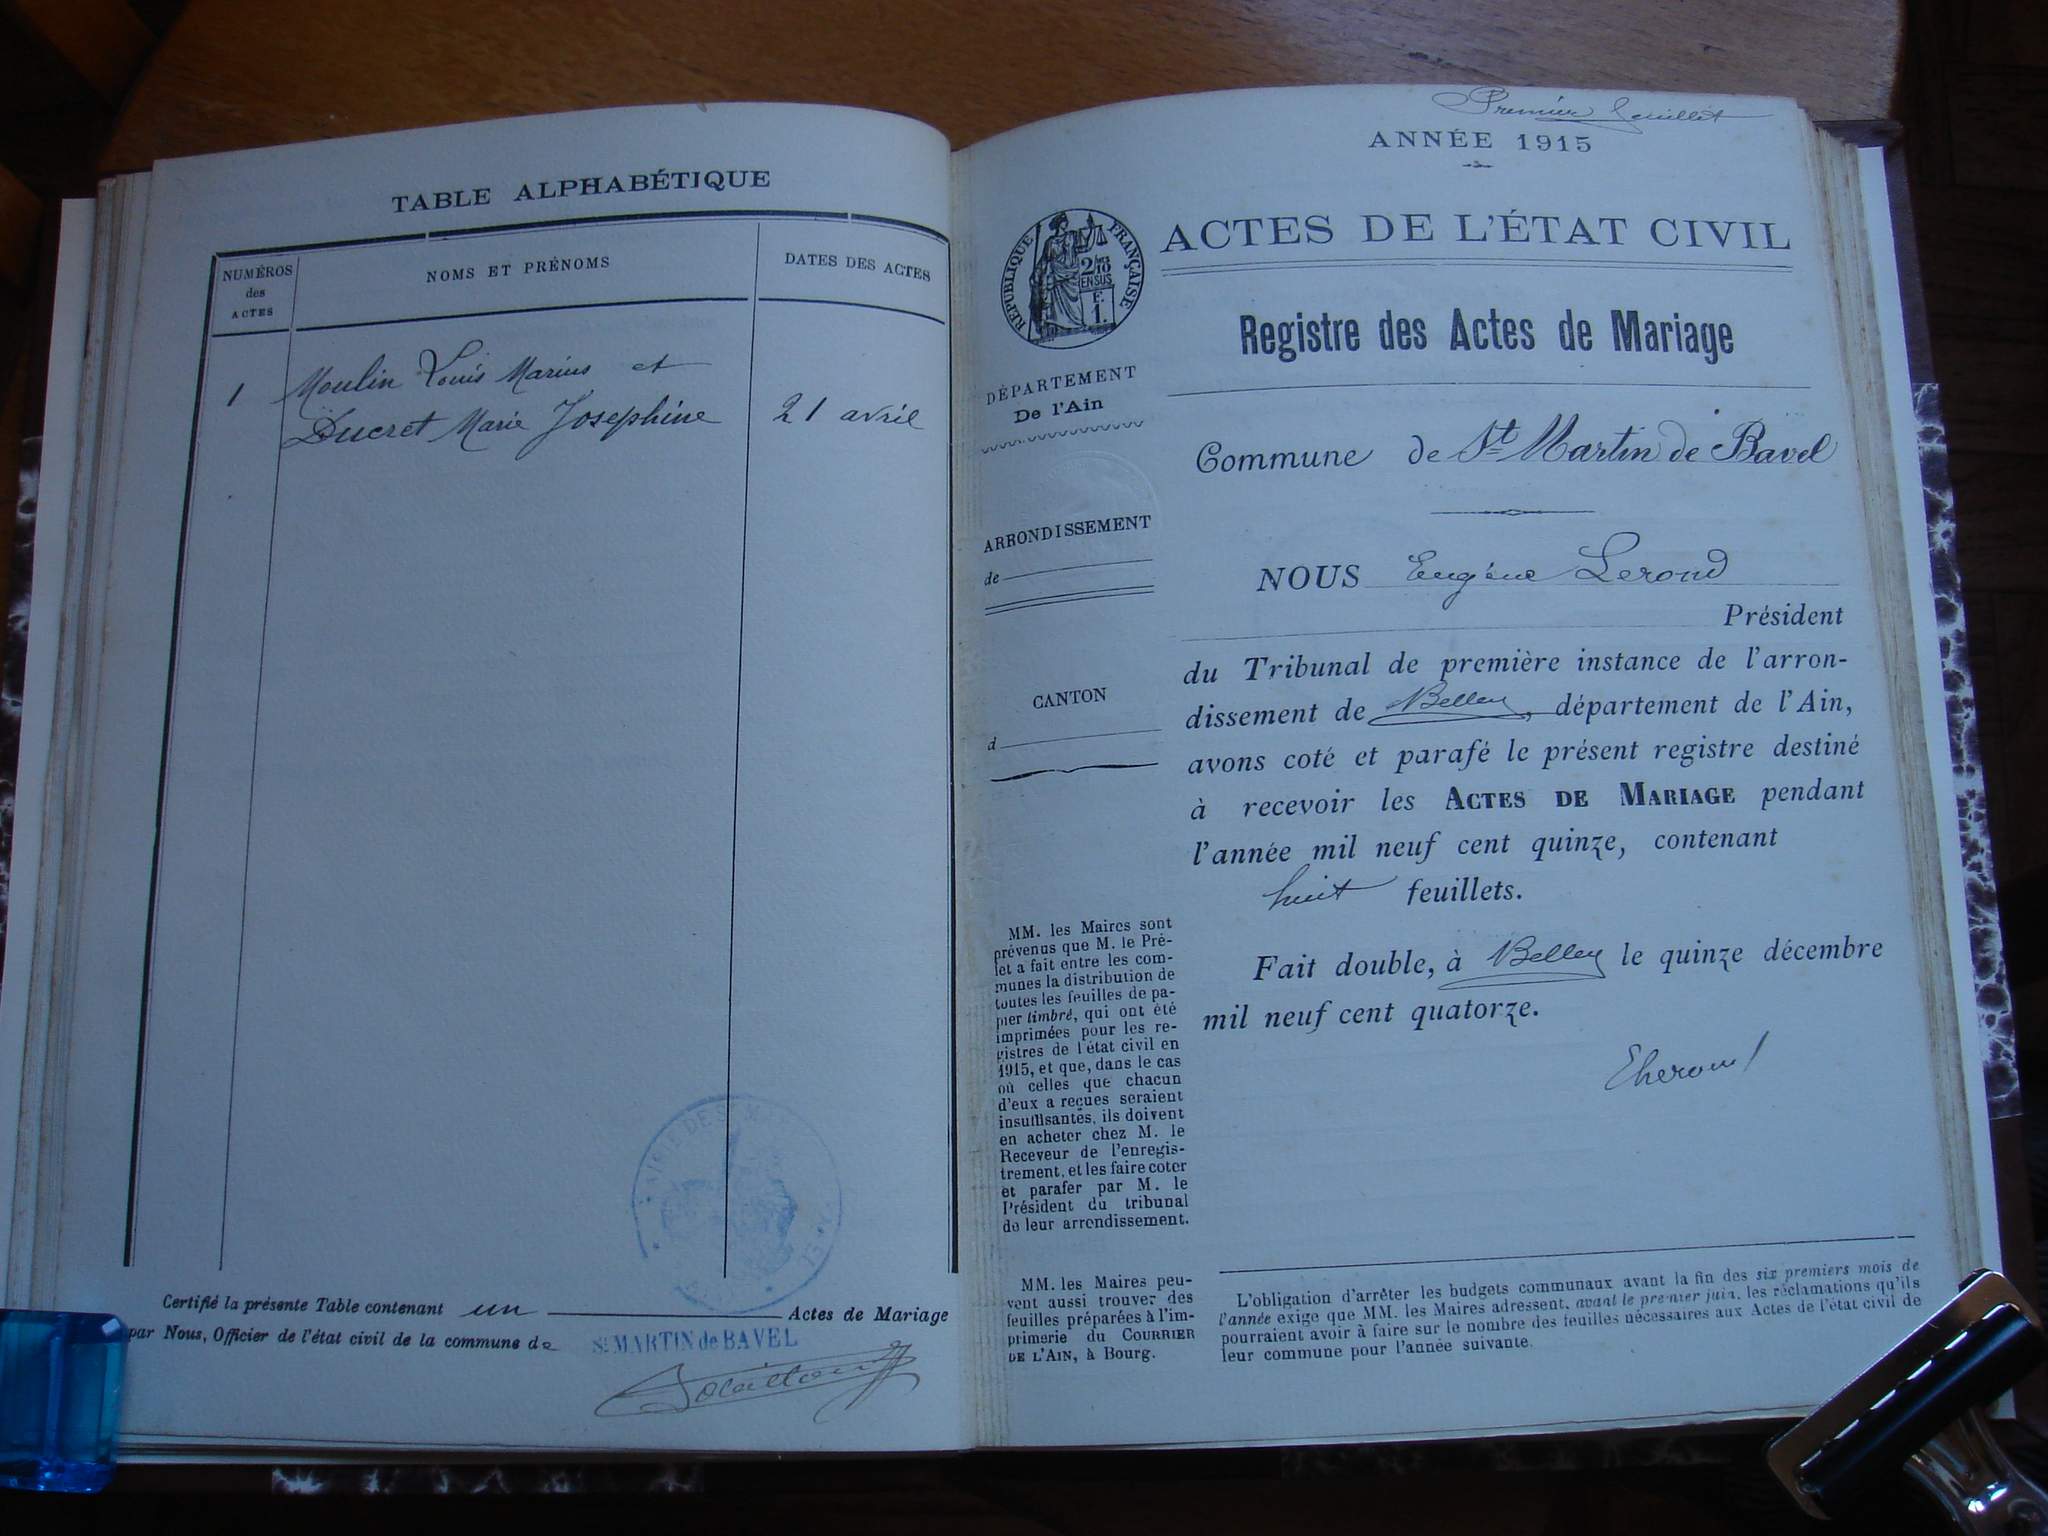 TABLE ALPHABÉTIQUE
NUMÉROS
des
ACTES
NOMS ET PRÉNOMS
DATES DES ACTES
1 Moulin Louis Marius et
Ducret Marie Josephine 21 avril
Certifié la présente Table contenant un Actes de Mariage
par Nous, Officier de l'état civil de la commune de
St MARTIN de BAVEL
Premier feuillet
ANNÉE 1915
RÉPUBLIQUE FRANÇAISE
2/10
EN SUS
F.
1.
ACTES DE L'ÉTAT CIVIL
Registre des Actes de Mariage
DÉPARTEMENT
De l'Ain
Commune de St Martin de Bavel
ARRONDISSEMENT
de
NOUS Eugène Lerond
Président
du Tribunal de première instance de l'arron-
dissement de Belley, département de l'Ain,
CANTON
d
avons coté et parafé le présent registre destiné
à recevoir les ACTES DE MARIAGE pendant
l'année mil neuf cent quinze, contenant
huit feuillets.
Fait double, à Belley le quinze décembre
mil neuf cent quatorze.
MM. les Maires sont
prévenus que M. le Pré-
fet a fait entre les com-
munes la distribution de
toutes les feuilles de pa-
pier timbré, qui ont été
imprimées pour les re-
gistres de l'état civil en
1915, et que, dans le cas
où celles que chacun
d'eux a reçues seraient
insuffisantes, ils doivent
en acheter chez M. le
Receveur de l'enregis-
trement, et les faire coter
et parafer par M. le
Président du tribunal
de leur arrondissement.
MM. les Maires peu-
vent aussi trouver des
feuilles préparées à l'im-
primerie du COURRIER
DE L'AIN, à Bourg.
L'obligation d'arrêter les budgets communaux avant la fin des six premiers mois de
l'année exige que MM. les Maires adressent, avant le premier juin, les réclamations qu'ils
pourraient avoir à faire sur le nombre des feuilles nécessaires aux Actes de l'état civil de
leur commune pour l'année suivante.